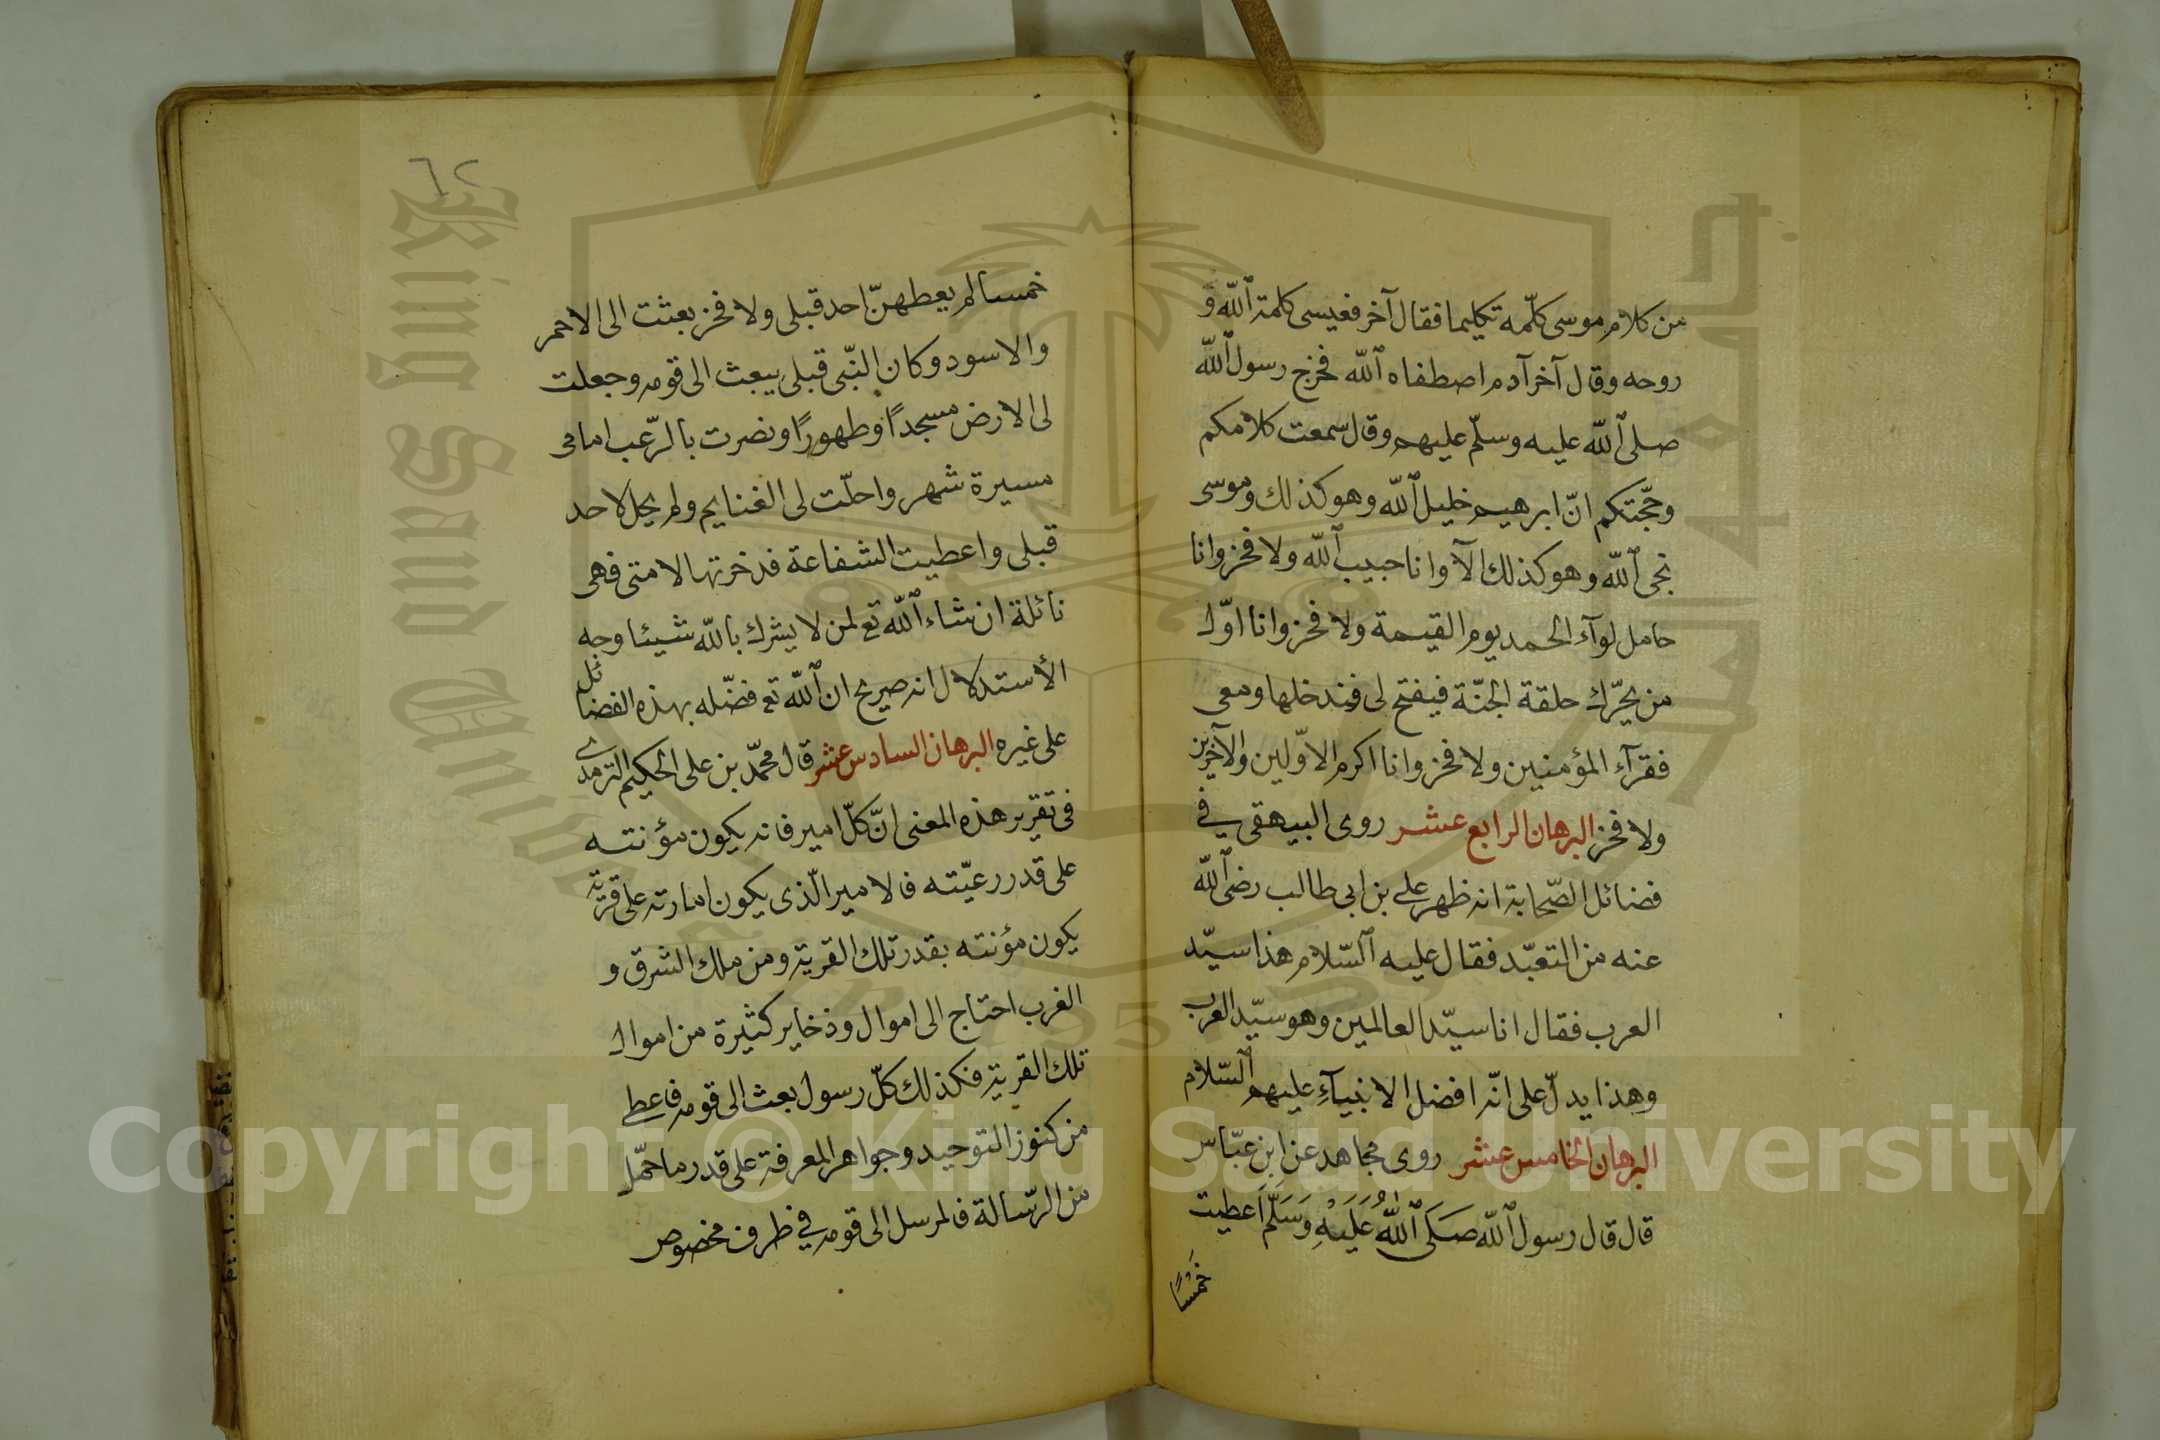 من كلام موسى كلّمه تكليما فقال آخر فعيسى كلمة الله و
روحه وقال آخر آدم اصطفاه الله فخرج رسول الله
صلى الله عليه وسلّم عليهم وقال سمعت كلامكم
وحجّتكم انّ ابرهيم خليل الله وهو كذلك وموسى
نجى الله وهو كذلك الآ وانا حبيب الله ولا فخر وانا
حامل لوآء الحمد يوم القيمة ولا فخر وانا اوّل
من يحرّك حلقة الجنّة فيفتح لى فيدخلها ومعى
فقرآء المؤمنين ولا فخر وانا اكرم الاوّلين والآخرين
ولا فخر البرهان الرابع عشر روى البيهقى في
فضائل الصّحابة انه ظهر على بن ابى طالب رضى الله
عنه من التعبّد فقال عليه السّلام هذا سيّد
العرب فقال انا سيّد العالمين وهو سيّد العرب
وهذا يدلّ على انّه افضل الانبيآء عليهم السّلام
البرهان الخامس عشر روى مجاهد عن ابن عبّاس
قال قال رسول الله صَلَى اللهُ عَلَيْهِ وَسَلَّمَ اَعطيت
خمسًا
٦٢
خمسا لم يعطهنّ احد قبلى ولا فخر بعثت الى الاحمر
والاسود وكان النّبى قبلى يبعث الى قومه وجعلت
لى الارض مسجداً وطهورًا ونصرت بالرّعب امامى
مسيرة شهر واحلّت لى الغنايم ولم يحل لاحد
قبلى واعطيت الشفاعة فدخرتها لامتى فهى
نائلة ان شاء الله تع لمن لا يشرك بالله شيئا وجه
الأستدلال انه صريح ان الله تع فضّله بهذه الفضائل
على غيره البرهان السادس عشر قال محمّد بن على الحكيم الترمدى
فى تقرير هذه المعنى انّ كلّ امير فانه يكون مؤنته
على قدر رعيّته فالامير الّذى يكون امارته على قرية
يكون مؤنته بقدر تلك القرية ومن ملك الشرق و
الغرب احتاج الى اموال وذخاير كثيرة من اموال
تلك القرية فكذلك كلّ رسول بعث الى قومه فاعطى
من كنوز التوحيد وجواهر المعرفة على قدر ما حمّل
من الرّسالة فالمرسل الى قومه في طرف مخصوص
King Saud University
1957
Copyright © King Saud University